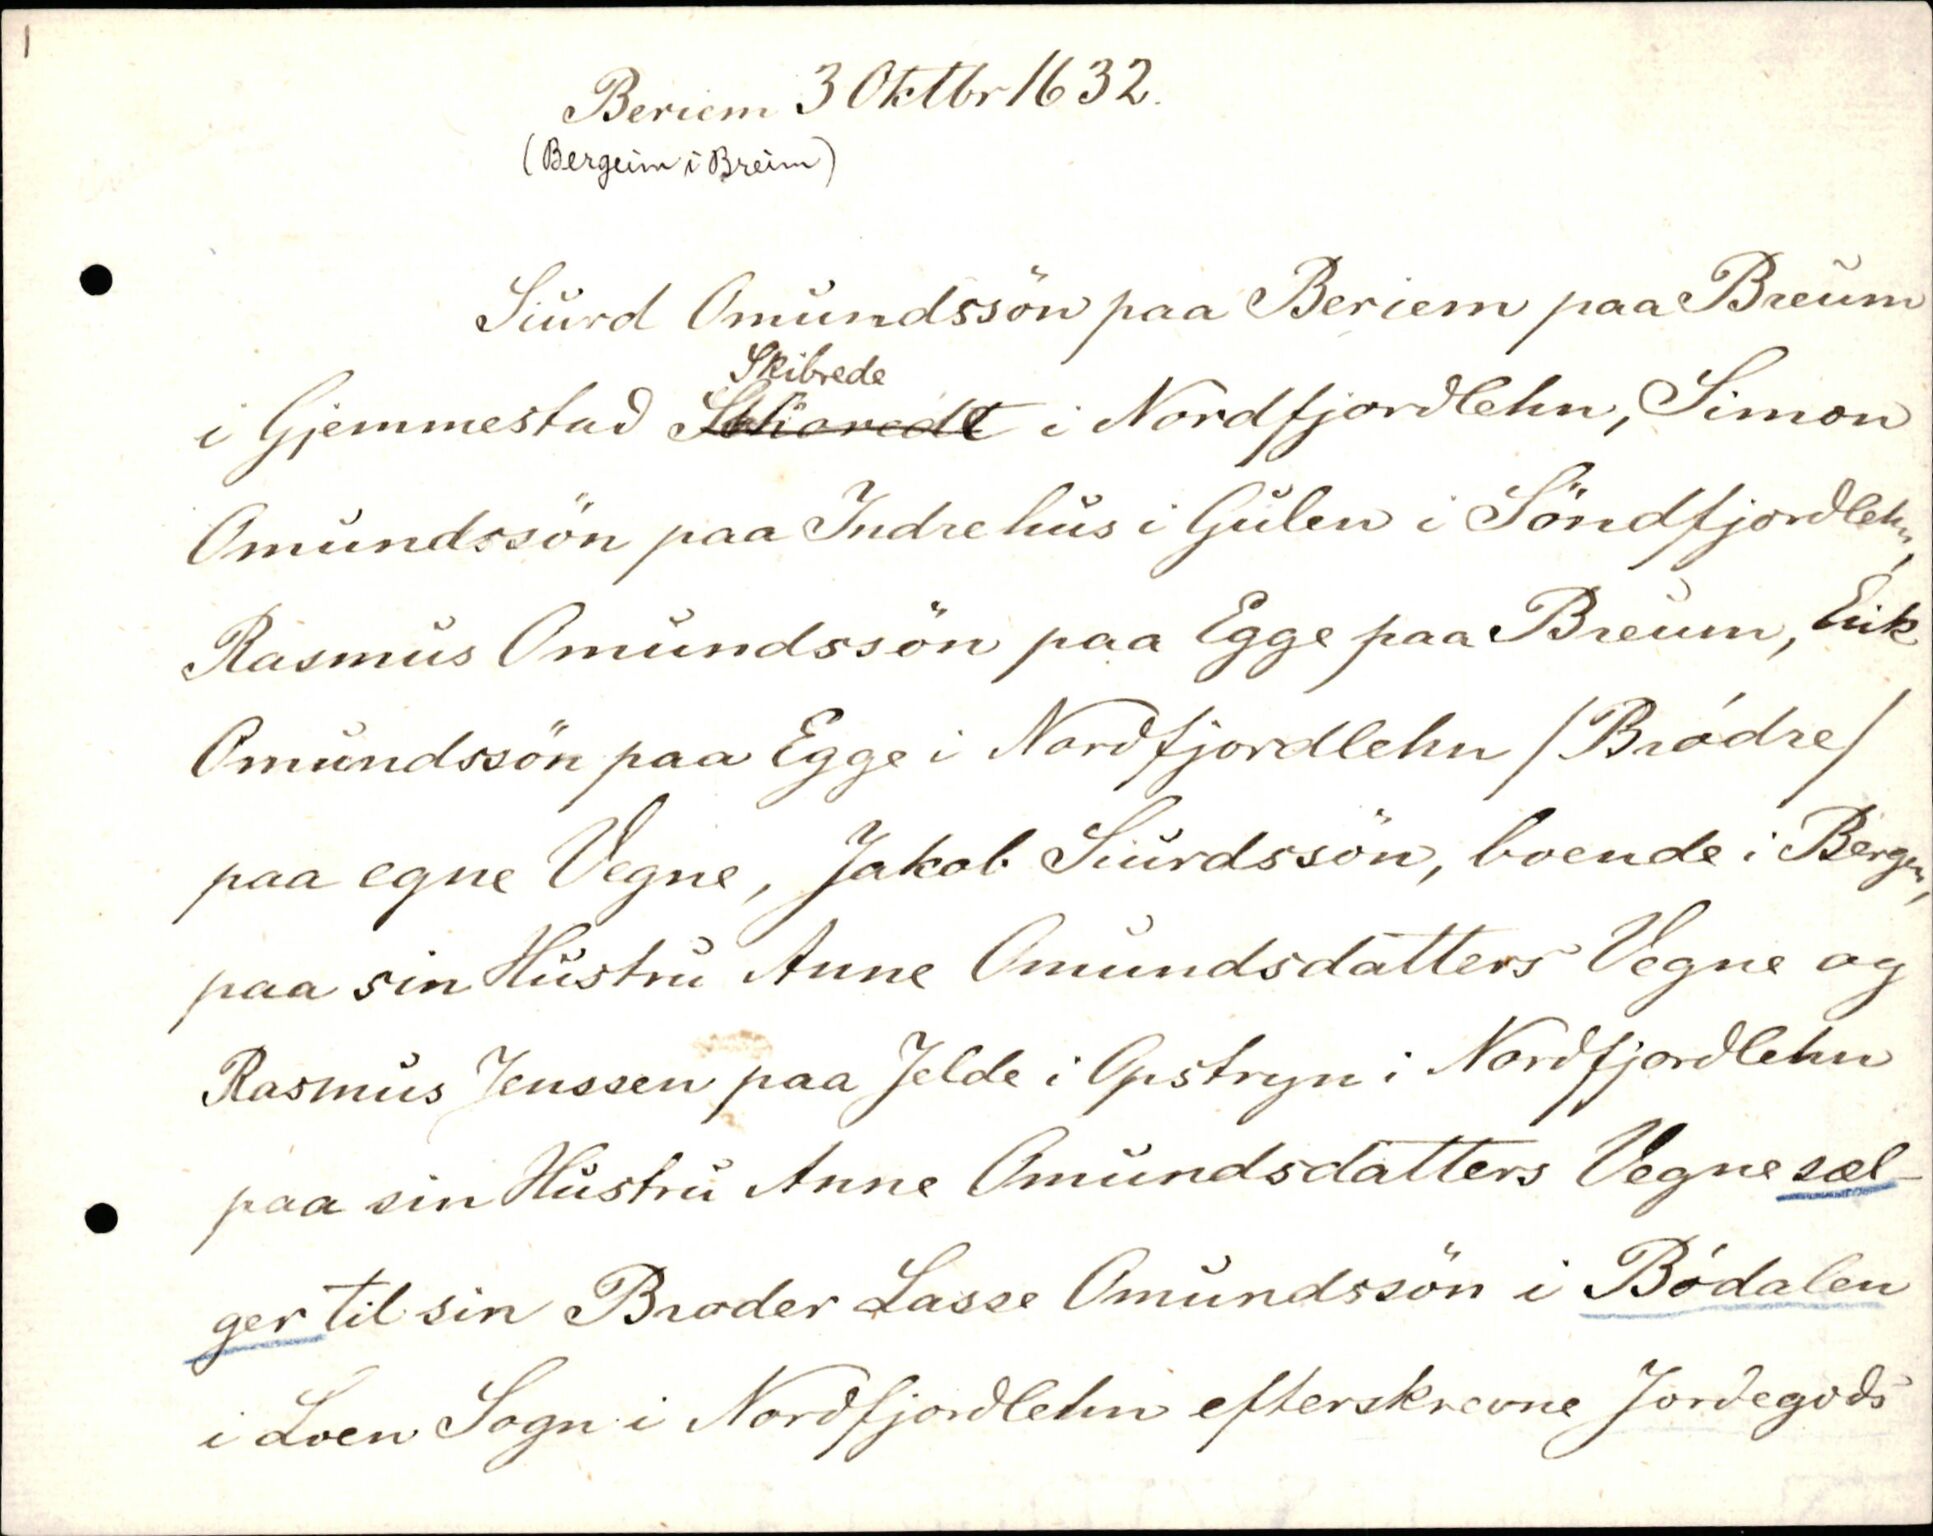 1
Beriem 3 Oktbr 1632.
(Bergeim i Breim)
Siurd Omundssön paa Beriem paa Breum
Skibrede
i Gjemmestad i Nordfjordlehn, Simon
Omundssön paa Indrehus i Gulen i Söndfjordlehn,
Rasmus Omundssön paa Egge paa Breum, Erik
Omundssön paa Egge i Nordfjordlehn /Brødre/
paa egne Vegne, Jakob Siurdssön, boende i Bergen,
paa sin Hustru Anne Omundsdatters Vegne og
Rasmus Jenssen paa Jelde i Opstryn i Nordfjordlehn
paa sin Hustru Anne Omundsdatters Vegne sæl-
ger til sin Broder Lasse Omundssön i Bødalen
i Loen Sogn i Nordfjordlehn efterskrevne Jordegods